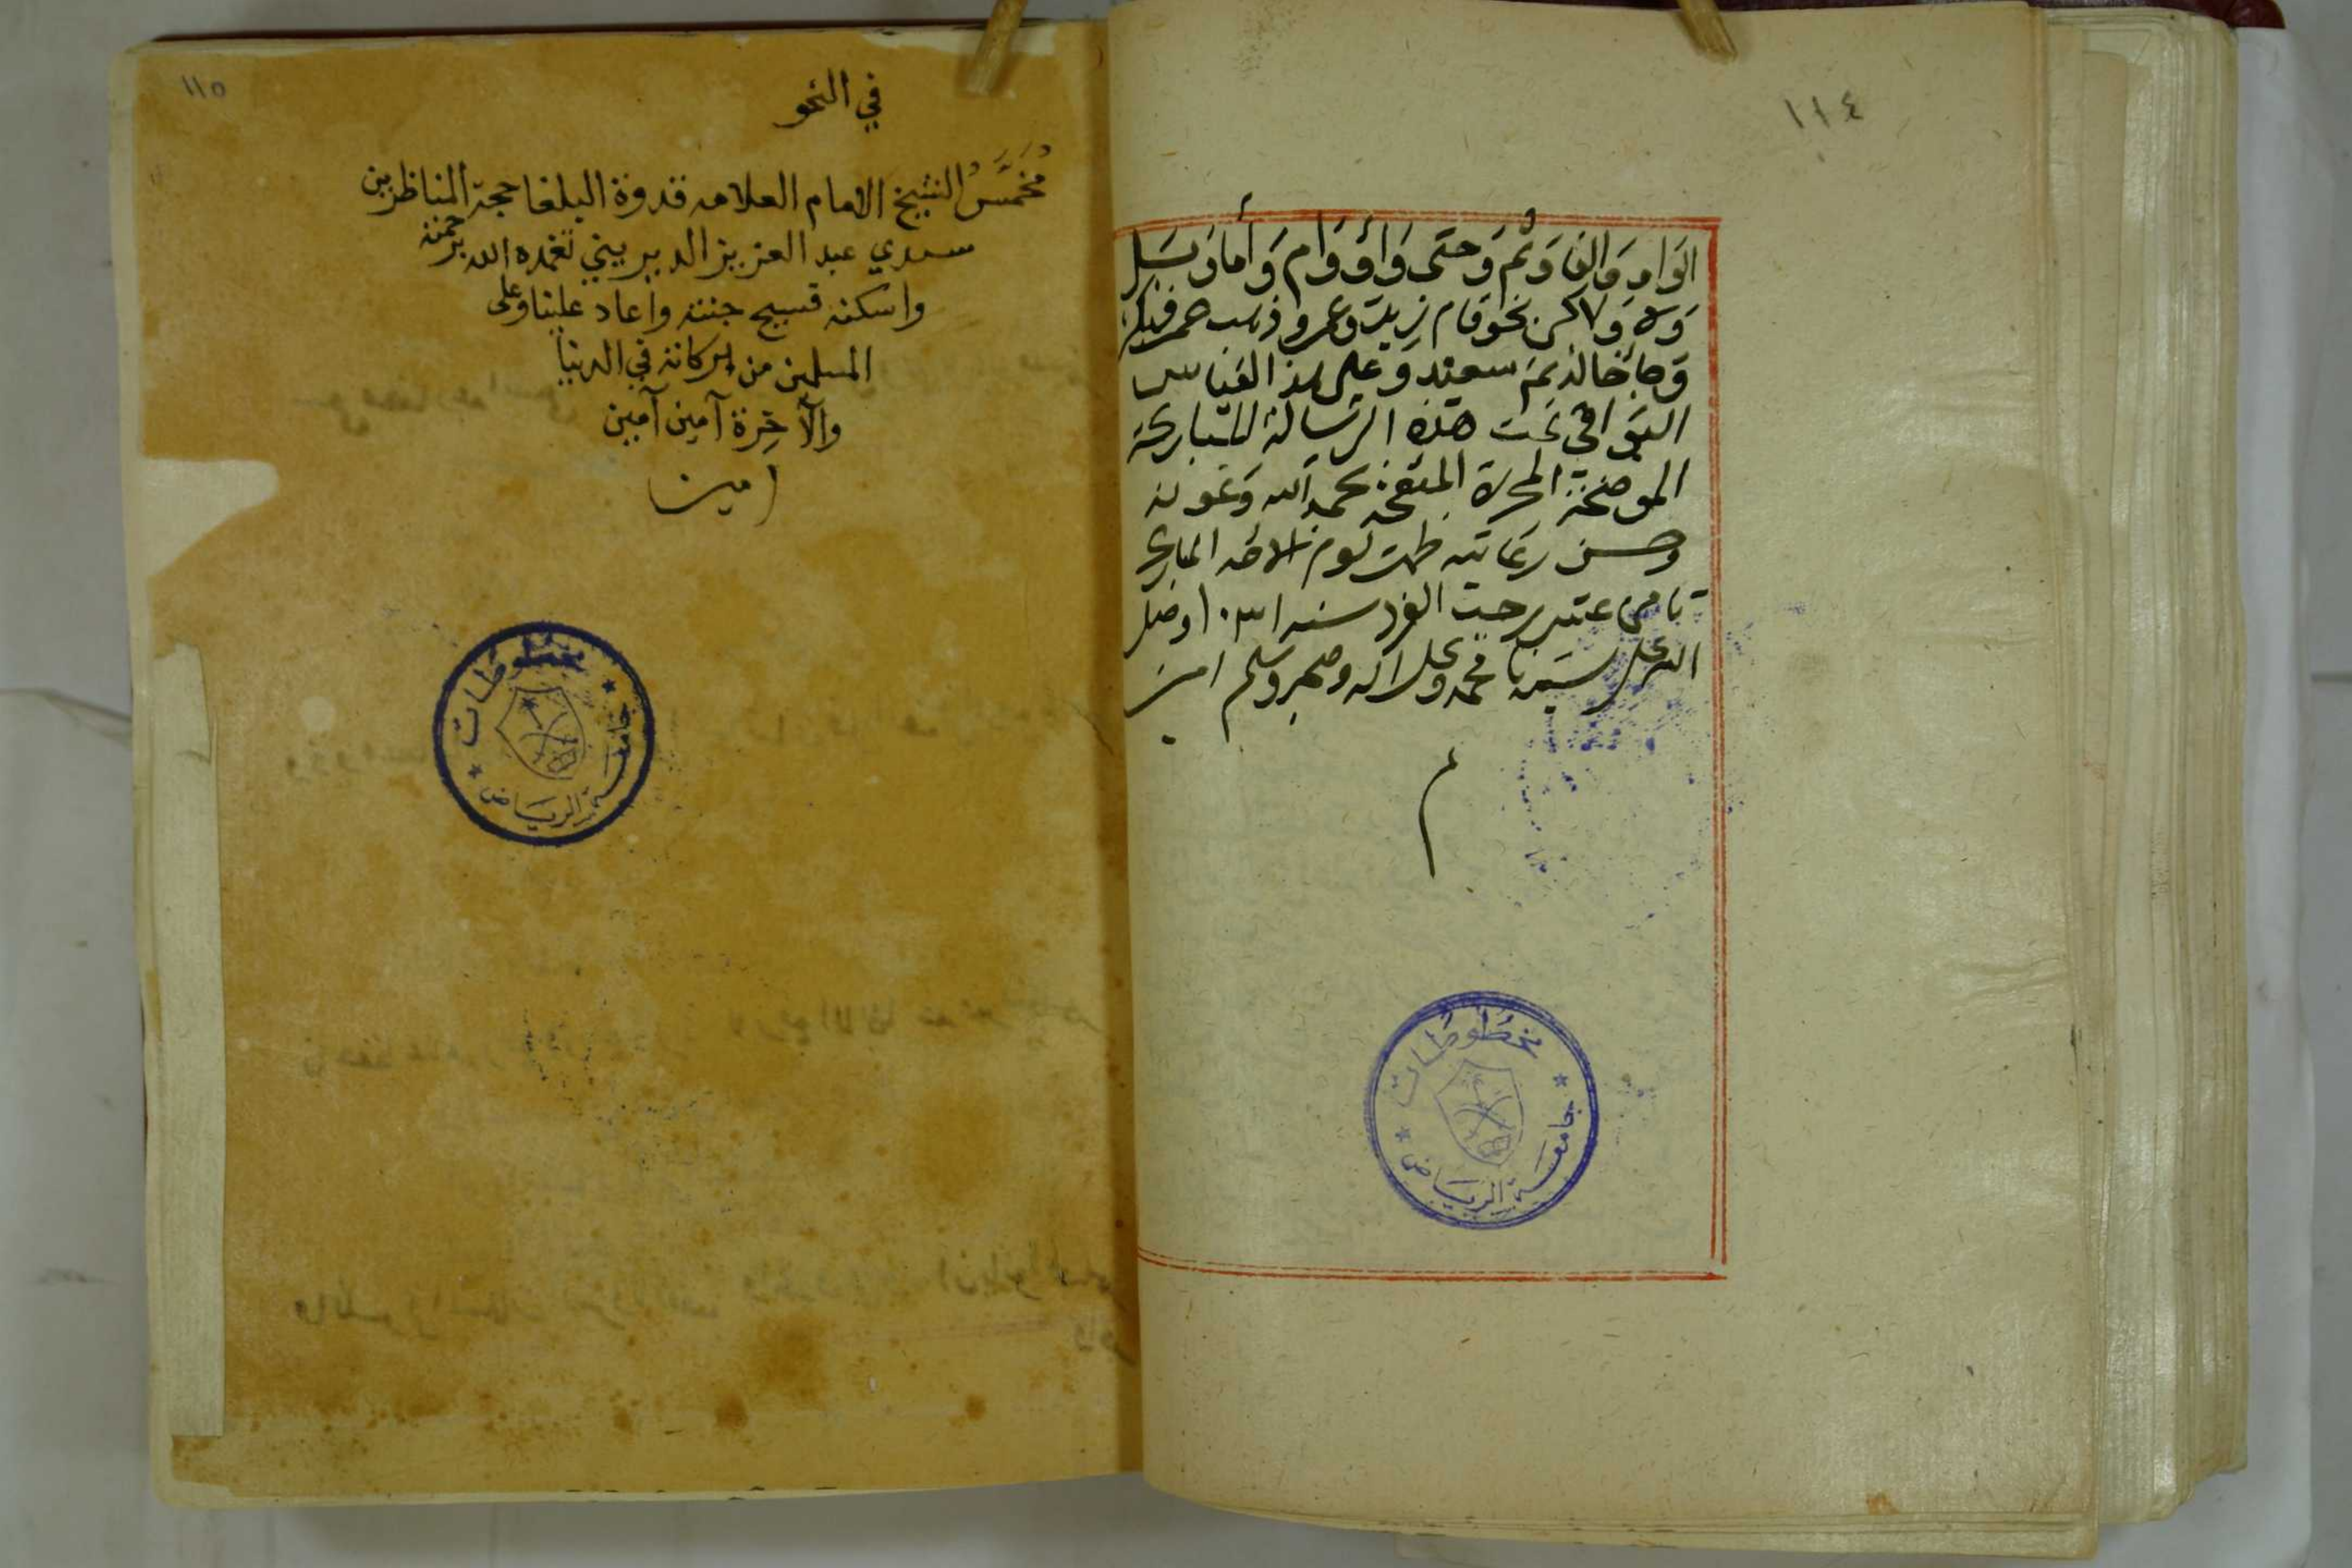 ١١٤
الوَاوِ وَالفَا وَثُمَّ وَحتى وَأوْ وَأمْ وَأمَا وَبَل
وَلا وَلاكن نحو قام زيد وعمرو وذهب عمر فبكر
وَجأ خالد ثم سعيد وعلى هذا القياس
البَواقي تمت هذه الرسالة المباركة
الموضحة المحررة المنقحة بحمد الله وَعَونه
وحسن رعايته ظهر يوم الاحد المبارك
ثامن عشر رجب الفرد سنه ١٠٣١ وصل
الله على سيدنا محمد وعلى اله وصحبه وسلم امين
م
مخطوطات
جامعة الرياض
١١٥
في النحو
مُخَمَّسُ الشيخ الامام العلامه قدوة البلغا حجة المناظرين
سيدي عبد العزيز الديريني تغمده الله برحمته
واسكنه فسيح جنته واعاد علينا وعلى
المسلمين من بركاته في الدنيا
والآخِرة آمين آمين
امين
مخطوطات
جامعة الرياض